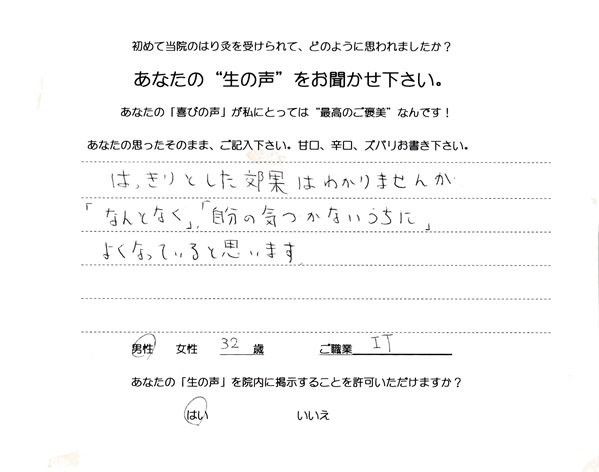 初めて当院のはり灸を受けられて、どのように思われましたか？
あなたの“生の声”をお聞かせ下さい。
あなたの「喜びの声」が私にとっては“最高のご褒美”なんです！
あなたの思ったそのまま、ご記入下さい。甘口、辛口、ズバリお書き下さい。
はっきりとした効果はわかりませんが
「なんとなく」,「自分の気づかないうちに」
よくなっていると思います
男性 女性 32 歳 ご職業 IT
あなたの「生の声」を院内に掲示することを許可いただけますか？
はい いいえ